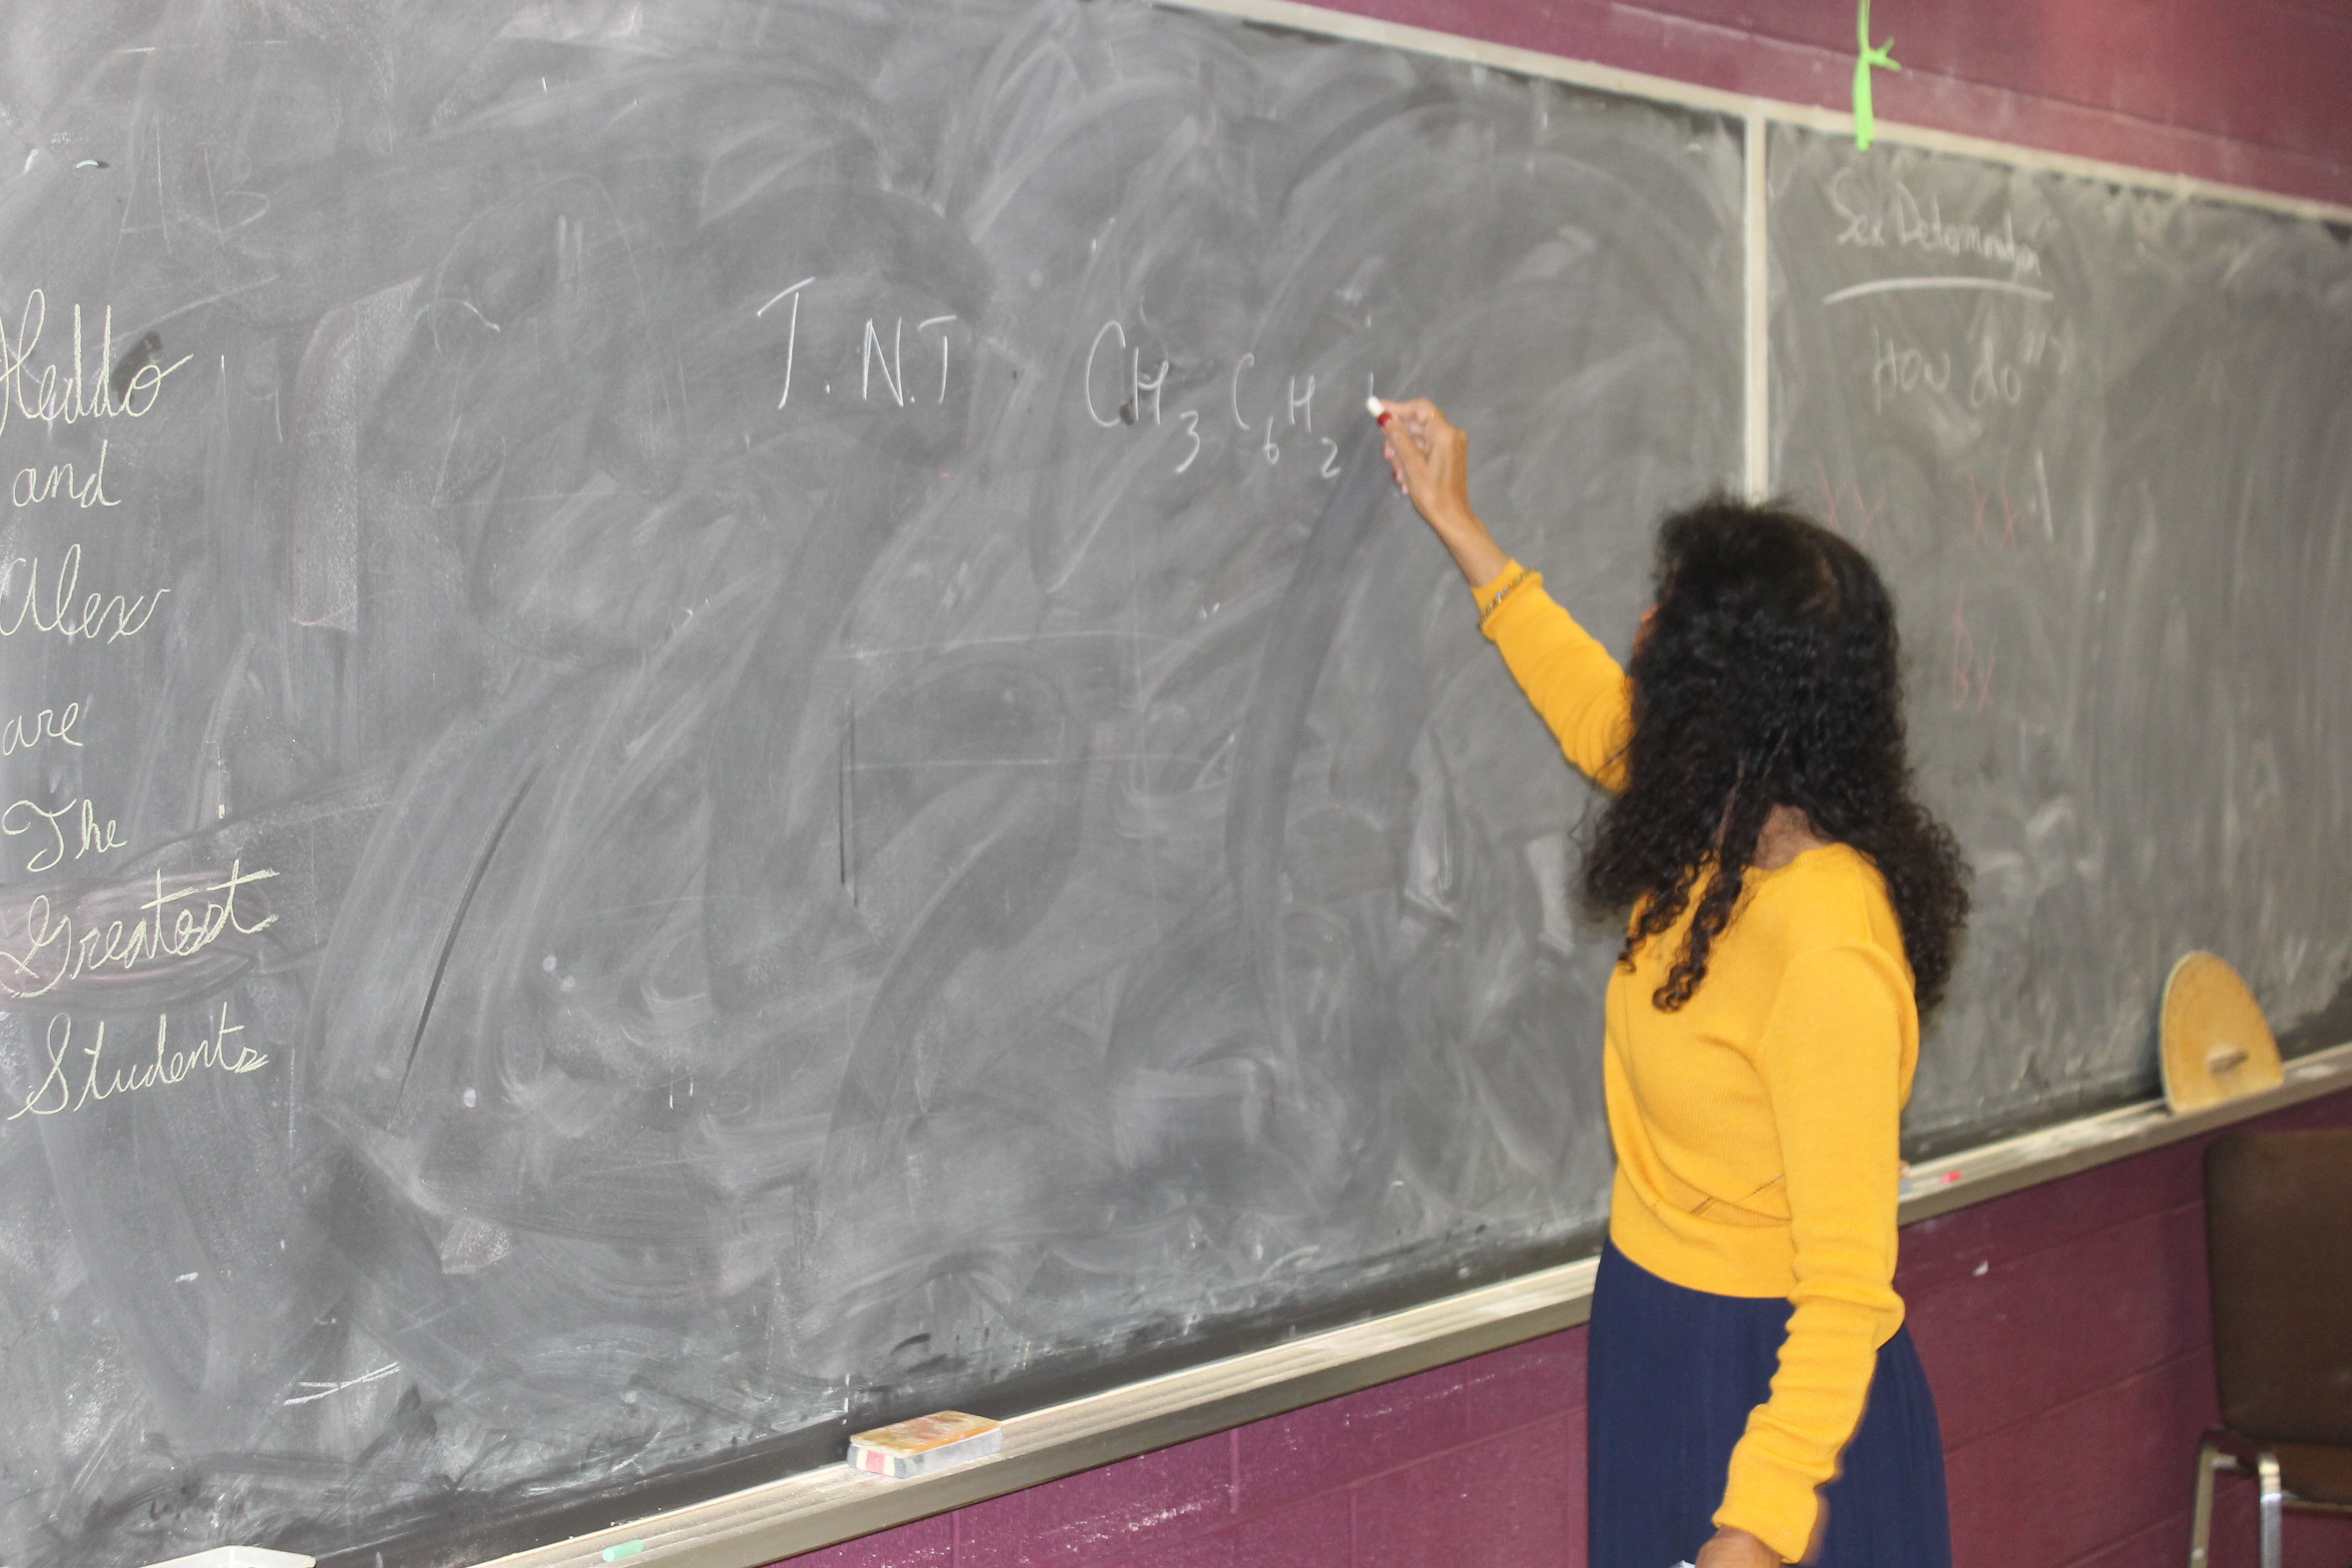 and
Alex
are
The
Greatest
Students
T.N.T
CH3 C6H2
Sex Determination
How do
XX